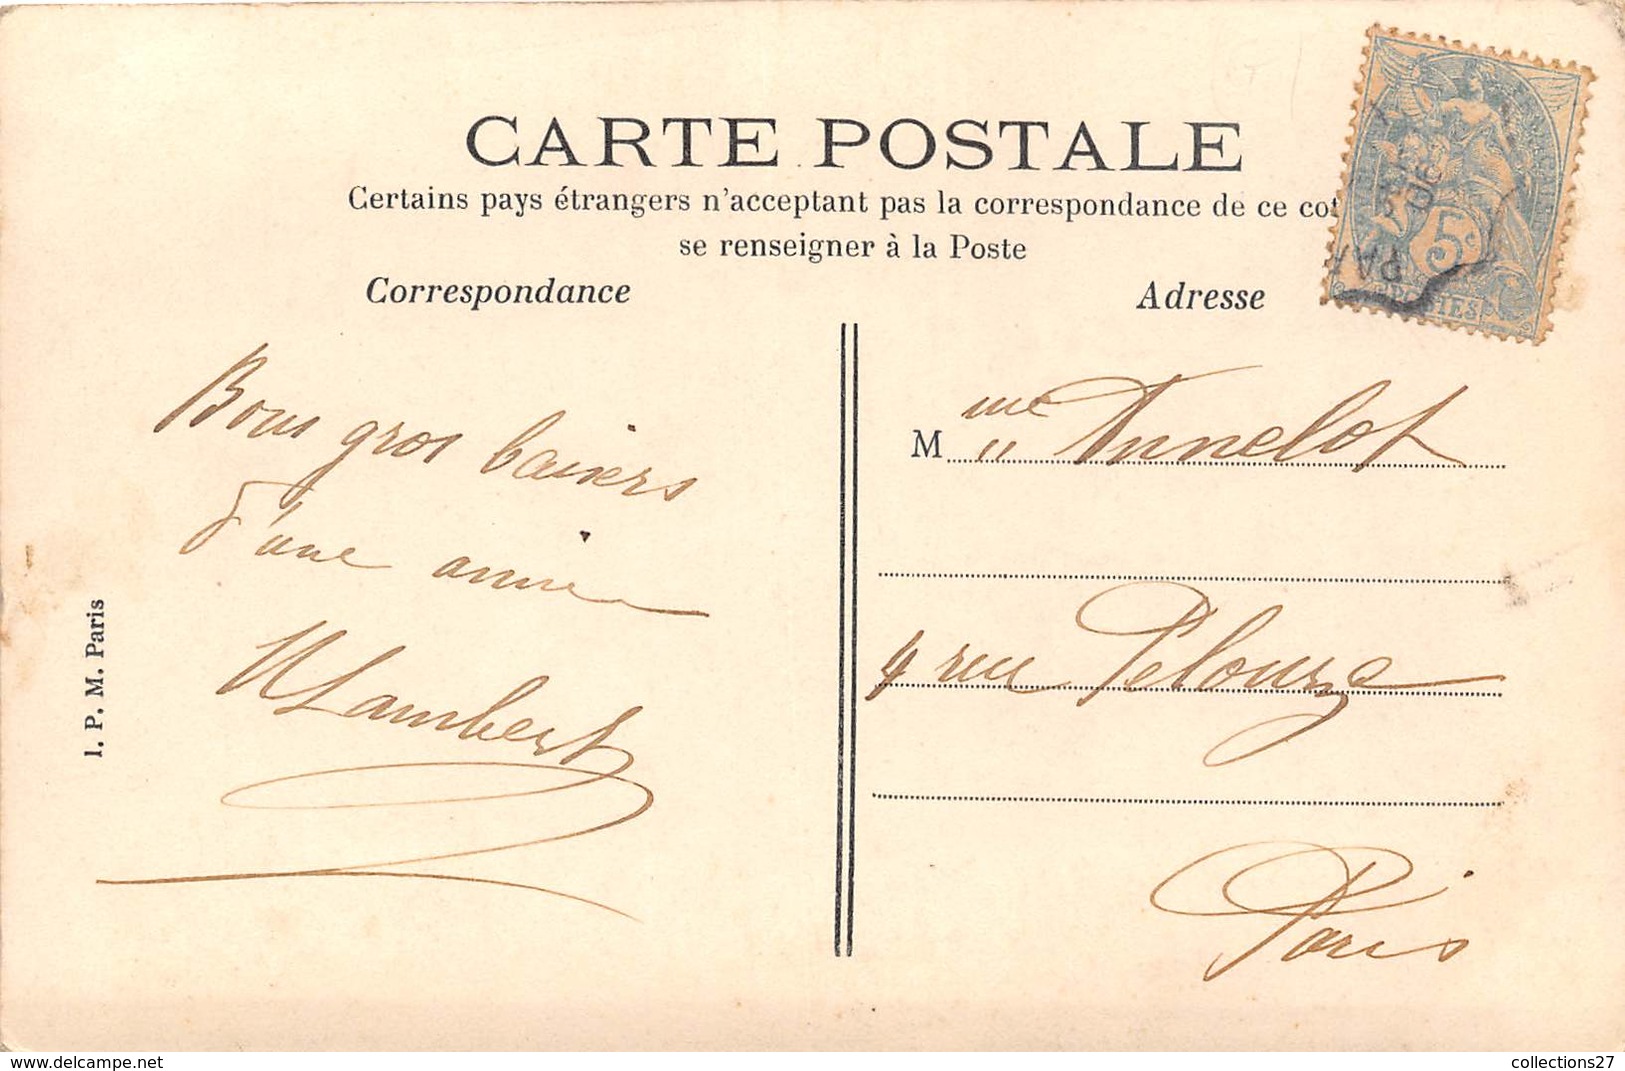 CARTE POSTALE
Certains pays étrangers n'acceptant pas la correspondance de ce co
se renseigner à la Poste
Correspondance
Adresse
Bons gros baisers
d'une amie
Lambert
M me " Annelot
4 rue Pelouze
Paris
I. P. M. Paris
PAR
DE
5c
POSTES
www.delcampe.net
collections27